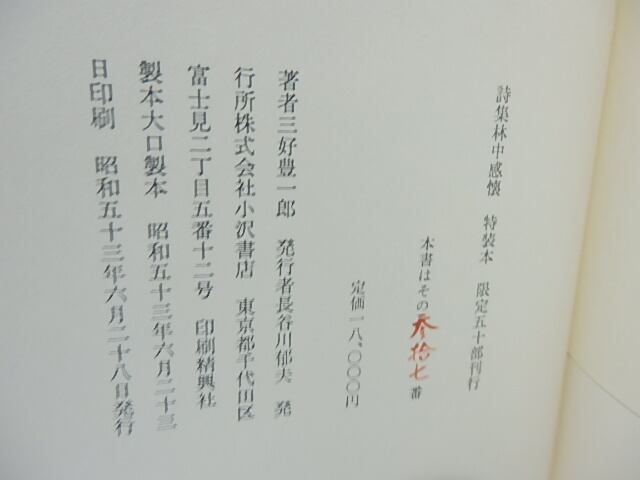 詩集林中感懐　特装本　限定五十部刊行
本書はその参拾七番
定価一八、〇〇〇円
著者三好豊一郎　発行者長谷川郁夫　発
行所株式会社小沢書店　東京都千代田区
富士見二丁目五番十二号　印刷精興社
製本大口製本　昭和五十三年六月二十三
日印刷　昭和五十三年六月二十八日発行